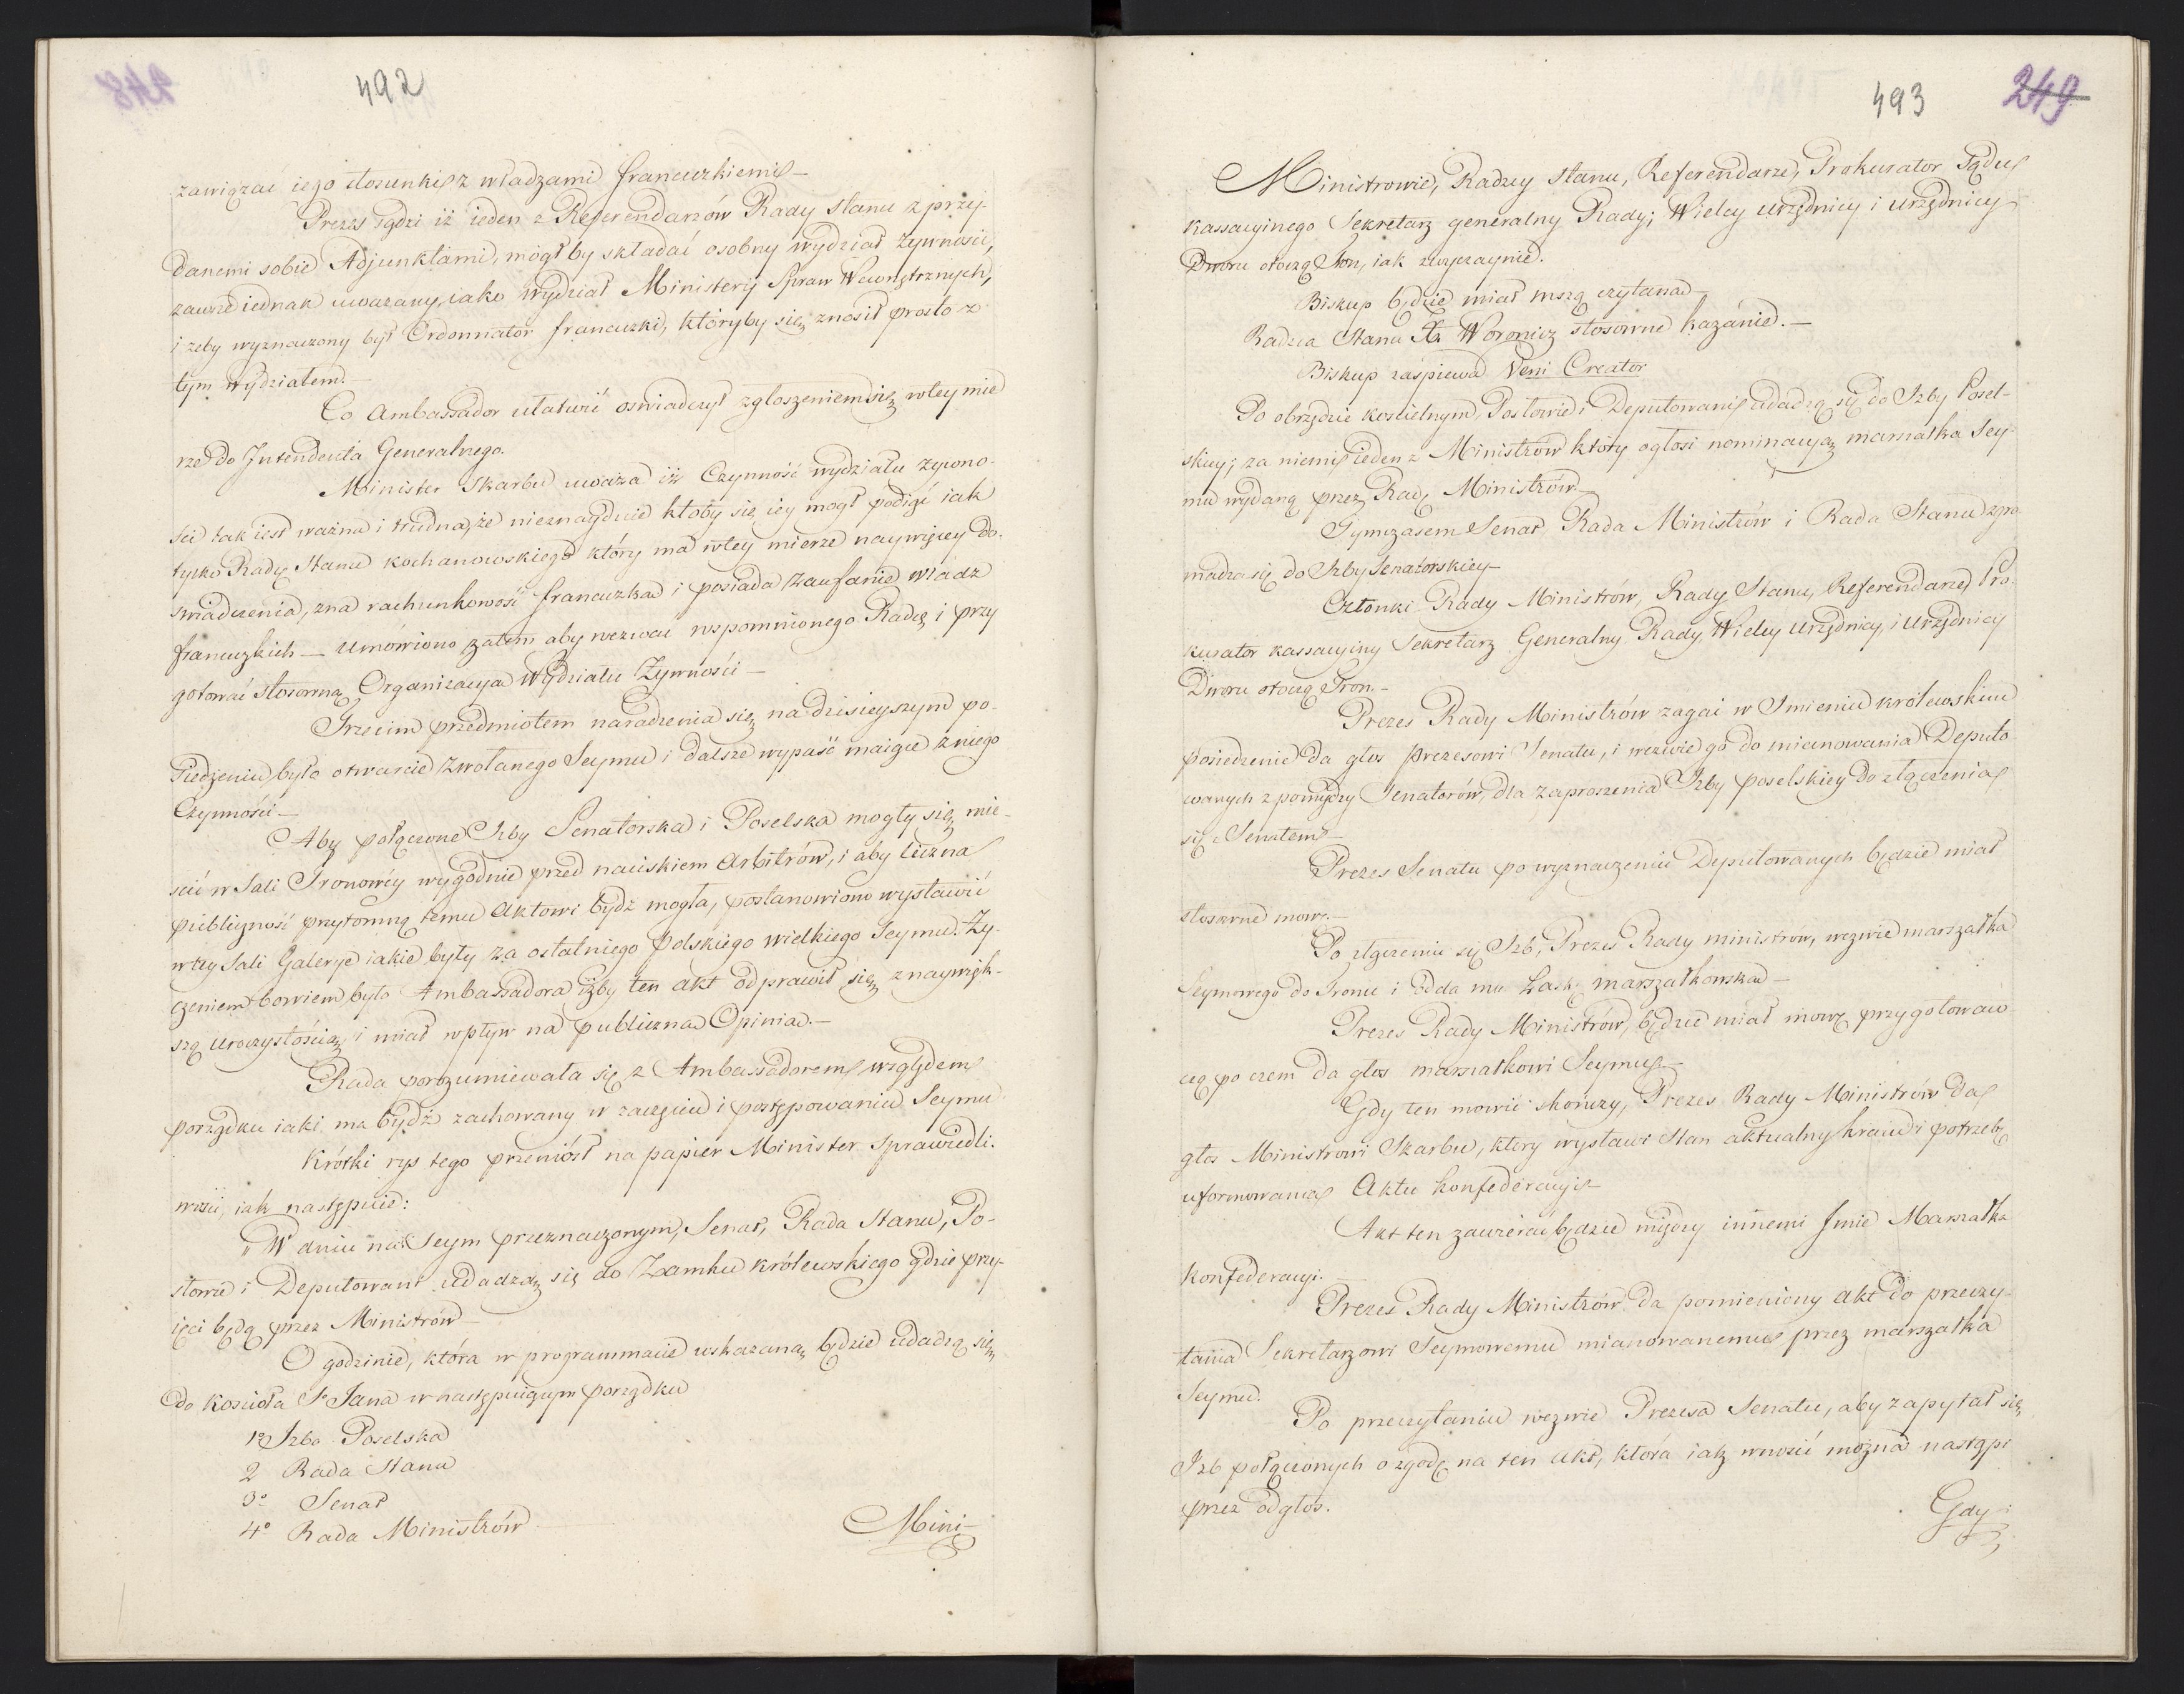 492
zawiązać iego stosunki z władzami francuzkiemi —
Prezes sądzi iż ieden z Referendarzów Rady Stanu z przy-
danemi sobie Adjunktami, mógłby składać osobny wydział żywności,
zawsze iednak uważany iako wydział Ministerij Spraw Wewnętrznych,
i żeby wyznaczony był Ordonnator francuzki, któryby się znosił prosto z
tym wydziałem. —
Co Ambassador ułatwić oświadczył zgłoszeniem się w tey mie
rze do Intendenta Generalnego.
Minister Skarbu uważa iż Czynność wydziału żywno-
ści tak iest ważna i trudna, że nieznaydzie ktoby się iey mógł podiąć iak
tylko Radcę Stanu Kochanowskiego który ma w tey mierze naywięcey do-
świadczenia, zna rachunkowość francuzka i posiada zaufanie władz
francuzkich — Umówiono zatem aby wezwać wspomnionego Radcę i przy
gotować stosowną Organizacya Wydziału Żywności —
Trzecim przedmiotem naradzenia się na dzisieyszym po-
siedzeniu, było otwarcie zwołanego Seymu i dalsze wypaść maiące z niego
Czynności —
Aby połączone Izby Senatorska i Poselska mogły się mie-
ścić w Sali Tronowéy wygodnie przed naciskiem Arbitrów, i aby liczna
publiczność przytomną temu Aktowi bydź mogła, postanowiono wystawić
w tey Sali Galerye iakie były za ostatniego Polskiego wielkiego Seymu. Ży-
czeniem bowiem było Ambassadora iżby ten akt odprawił się z naywięk-
szą uroczystością i miał wpływ na publiczna Opinia. —
Rada porozumiewała się z Ambassadorem względem
porządku iaki ma bydź zachowany w zaczęciu i postępowaniu Seymu
Krótki rys tego przeniósł na papier Minister Sprawiedli-
wości, iak następuie:
„W dniu na Seym przeznaczonym, Senat, Rada Stanu, Po-
słowie i Deputowani udadzą się do Zamku Królewskiego gdzie przy-
ięci będą przez Ministrów —
O godzinie, która w programmacie wskazaną będzie udadzą się
do Kościoła Sgo Jana w następuiącym porządku
1º Izba Poselska
2 Rada Stanu
3º Senat
4º Rada Ministrów
Mini-
493 249
Ministrowie, Radcy Stanu, Referendarze, Prokurator Sądu
Kassacyinego Sekretarz generalny Rady; Wielcy urzędnicy i urzędnicy
Dworu otoczą Tron, iak zwyczaynie.
Biskup będzie miał mszą czytaną —
Radzca Stanu Xz Woronicz stosowne kazanie. —
Biskup zaśpiewa Veni Creator
Po obrzędzie kościelnym, Posłowie i Deputowani udadzą się do Izby Posel-
skiey; za niemi ieden z Ministrów który ogłosi nominacyą marszałka Sey-
mu wydaną przez Radę Ministrów —
Tymczasem Senat Rada Ministrów i Rada Stanu zgro
madza się do Izby Senatorskiey —
Członki Rady Ministrów, Rady Stanu, Referendarze, Pro-
kurator kassacyiny Sekretarz Generalny Rady Wielcy Urzędnicy, i Urzędnicy
Dworu otoczą Tron. —
Prezes Rady Ministrów zagai w Imieniu królewskim
posiedzenie da głos Prezesowi Senatu, i wezwie go do mianowania Deputo
wanych z pomiędzy Senatorów, dla zaproszenia Izby poselskiey do złączenia
się z Senatem —
Prezes Senatu po wyznaczeniu Deputowanych będzie miał
stosowne mowę. —
Po złączeniu się Izb, Prezes Rady ministrow, wezwie marszałka
Seymowego do Tronu i odda mu Laskę marszałkowska —
Prezes Rady Ministrów, będzie miał mowę przygotowaw
czą po czem da głos marszałkowi Seymu —
Gdy ten mowić skończy, Prezes Rady Ministrów da
głos Ministrowi Skarbu, który wystawi Stan aktualny kraiu i potrzebę
uformowania Aktu konfederacyi —
Akt ten zawierać będzie między innemi Imie Marszałka
Konfederacyi. —
Prezes Rady Ministrów da pomieniony akt do przeczy-
tania Sekretarzowi Seymowemu mianowanemu przez marszałka
Seymu.
Po przeczytaniu wezwie Prezesa Senatu, aby zapytał się
Izb połączonych o zgodę na ten akt, która iak wnosić można nastąpi
przez odgłos.
Gdy